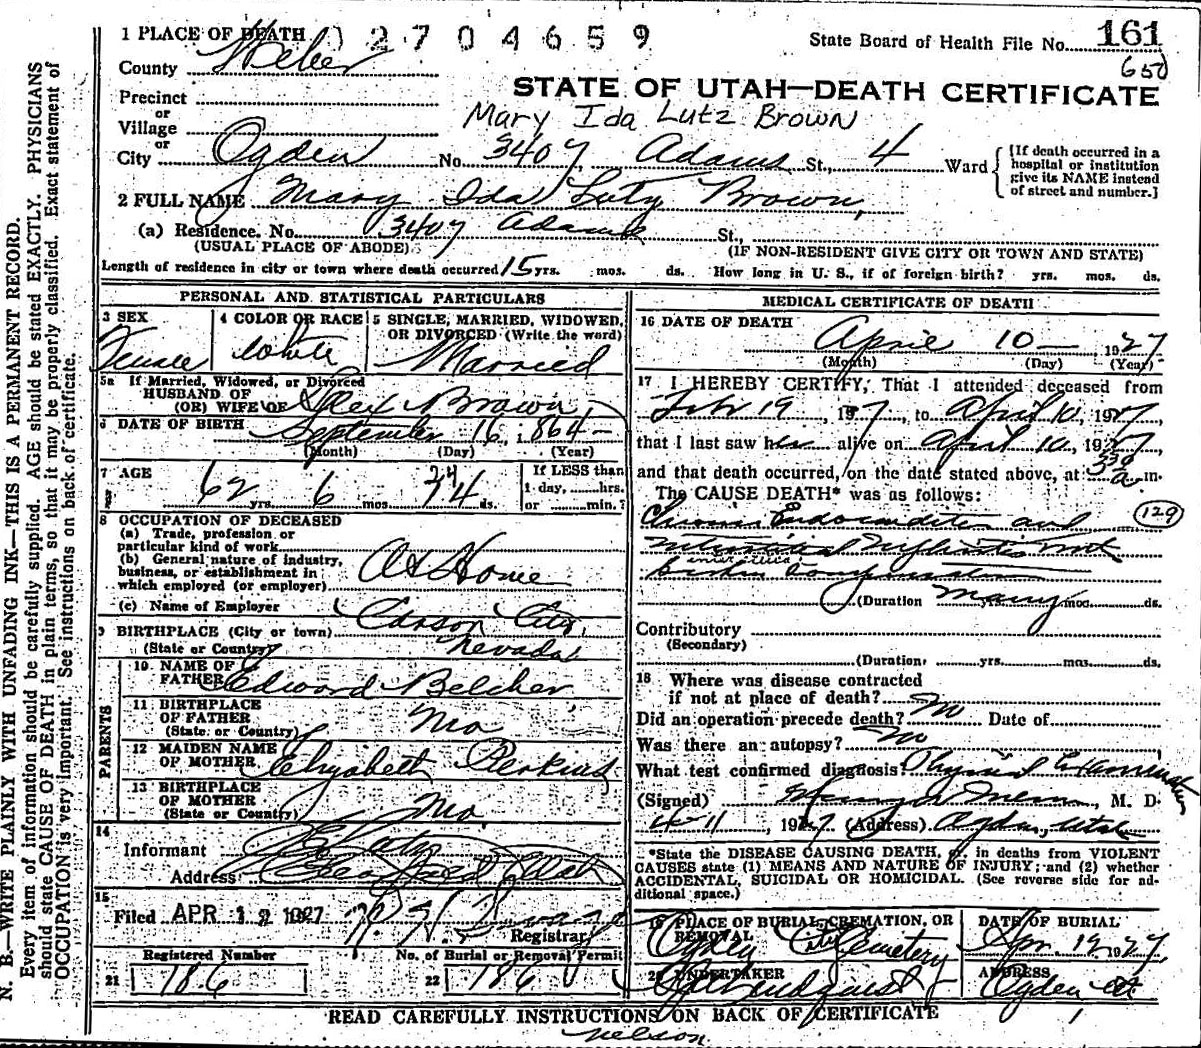 1 PLACE OF DEATH
02704659
State Board of Health File No. 161
650
County Weber
STATE OF UTAH—DEATH CERTIFICATE
Precinct
or
Village
Mary Ida Lutz Brown
or
City Ogden No. 3407 Adams St., 4 Ward
[If death occurred in a
hospital or institution
give its NAME instead
of street and number.]
2 FULL NAME Mary Ida Lutz Brown,
(a) Residence. No. 3407 Adams St.,
(USUAL PLACE OF ABODE)
(IF NON-RESIDENT GIVE CITY OR TOWN AND STATE)
Length of residence in city or town where death occurred 15 yrs. mos. ds. How long in U. S., if of foreign birth? yrs. mos. ds.
PERSONAL AND STATISTICAL PARTICULARS
3 SEX
Female
4 COLOR OR RACE
White
5 SINGLE, MARRIED, WIDOWED,
OR DIVORCED (Write the word)
Married
5a If Married, Widowed, or Divorced
HUSBAND OF
(OR) WIFE OF Alex Brown
6 DATE OF BIRTH September 16, 1864
(Month) (Day) (Year)
7 AGE
62 yrs. 6 mos. 24 ds.
If LESS than
1 day, hrs.
or min.?
8 OCCUPATION OF DECEASED
(a) Trade, profession or
particular kind of work
(b) General nature of industry,
business, or establishment in
which employed (or employer) At Home
(c) Name of Employer
9 BIRTHPLACE (City or town) Carson City,
(State or Country) Nevada
PARENTS
10 NAME OF
FATHER Edward Belcher
11 BIRTHPLACE
OF FATHER
(State or Country) Mo
12 MAIDEN NAME
OF MOTHER Elizabeth Perkins
13 BIRTHPLACE
OF MOTHER
(State or Country) Mo.
14
Informant
Address Utah
15
Filed APR 12 1927
Registrar
Registered Number
21 186
No. of Burial or Removal Permit
22 186
MEDICAL CERTIFICATE OF DEATH
16 DATE OF DEATH
April 10 1927
(Month) (Day) (Year)
17 I HEREBY CERTIFY, That I attended deceased from
Feb 19, 1927, to April 10, 1927,
that I last saw her alive on April 10, 1927,
and that death occurred, on the date stated above, at 3 30 a. m.
The CAUSE DEATH* was as follows:
Chronic Endocarditis and
129
Interstitial Nephritis
Broken Compensation
(Duration many yrs. mos. ds.
Contributory
(Secondary)
(Duration, yrs. mos. ds.
18 Where was disease contracted
if not at place of death? No
Did an operation precede death? No Date of
Was there an autopsy? No
What test confirmed diagnosis? Physical Examination
(Signed) M. D.
4-11, 1927 (Address) Ogden, Utah
*State the DISEASE CAUSING DEATH, or, in deaths from VIOLENT
CAUSES state (1) MEANS AND NATURE OF INJURY; and (2) whether
ACCIDENTAL, SUICIDAL OR HOMICIDAL. (See reverse side for ad-
ditional space.)
19 PLACE OF BURIAL, CREMATION, OR
REMOVAL
Ogden City Cemetery
DATE OF BURIAL
Apr. 12 1927
20 UNDERTAKER
Lindquist
ADDRESS
Ogden, Ut
READ CAREFULLY INSTRUCTIONS ON BACK OF CERTIFICATE
Nelson.
N. B.—WRITE PLAINLY WITH UNFADING INK—THIS IS A PERMANENT RECORD.
Every item of information should be carefully supplied. AGE should be stated EXACTLY. PHYSICIANS
should state CAUSE OF DEATH in plain terms, so that it may be properly classified. Exact statement of
OCCUPATION is very important. See instructions on back of certificate.